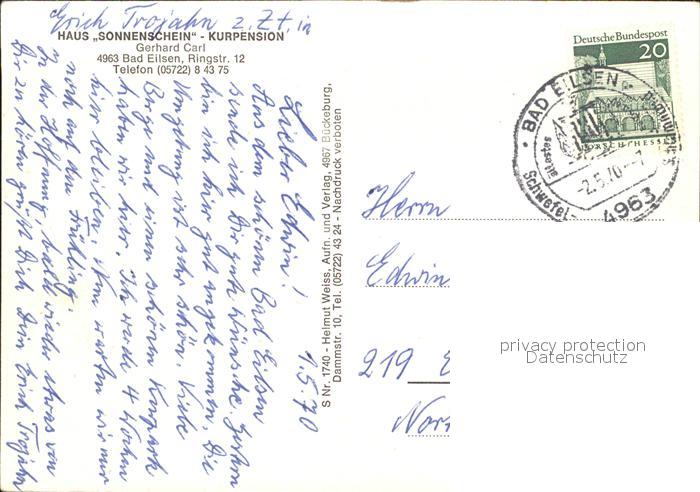 Erich Trojahn z. Zt. in
HAUS „SONNENSCHEIN" - KURPENSION
Gerhard Carl
4963 Bad Eilsen, Ringstr. 12
Telefon (05722) 8 43 75
1.5.70
Lieber Edwin!
Aus dem schönen Bad Eilsen
sende ich Dir gute Wünsche. Gestern
bin ich hier gut angekommen. Die
Umgebung ist sehr schön. Viele
Berge und einen schönen Kurpark
haben wir hier. Ich werde 4 Wochen
hier bleiben. Nun warten wir nur
noch auf den Frühling.
In der Hoffnung, bald wieder etwas von
Dir zu hören grüßt Dich Dein Erich Trojahn
S Nr. 1740 - Helmut Weiss, Aufn. und Verlag, 4967 Bückeburg,
Dammstr. 10, Tel. (05722) 43 24 - Nachdruck verboten
Deutsche Bundespost
20
LORSCH/HESSEN
BAD EILSEN
-2.5.70--7
4963
Schwefel-
Herrn
Edwin
219
privacy protection
Datenschutz